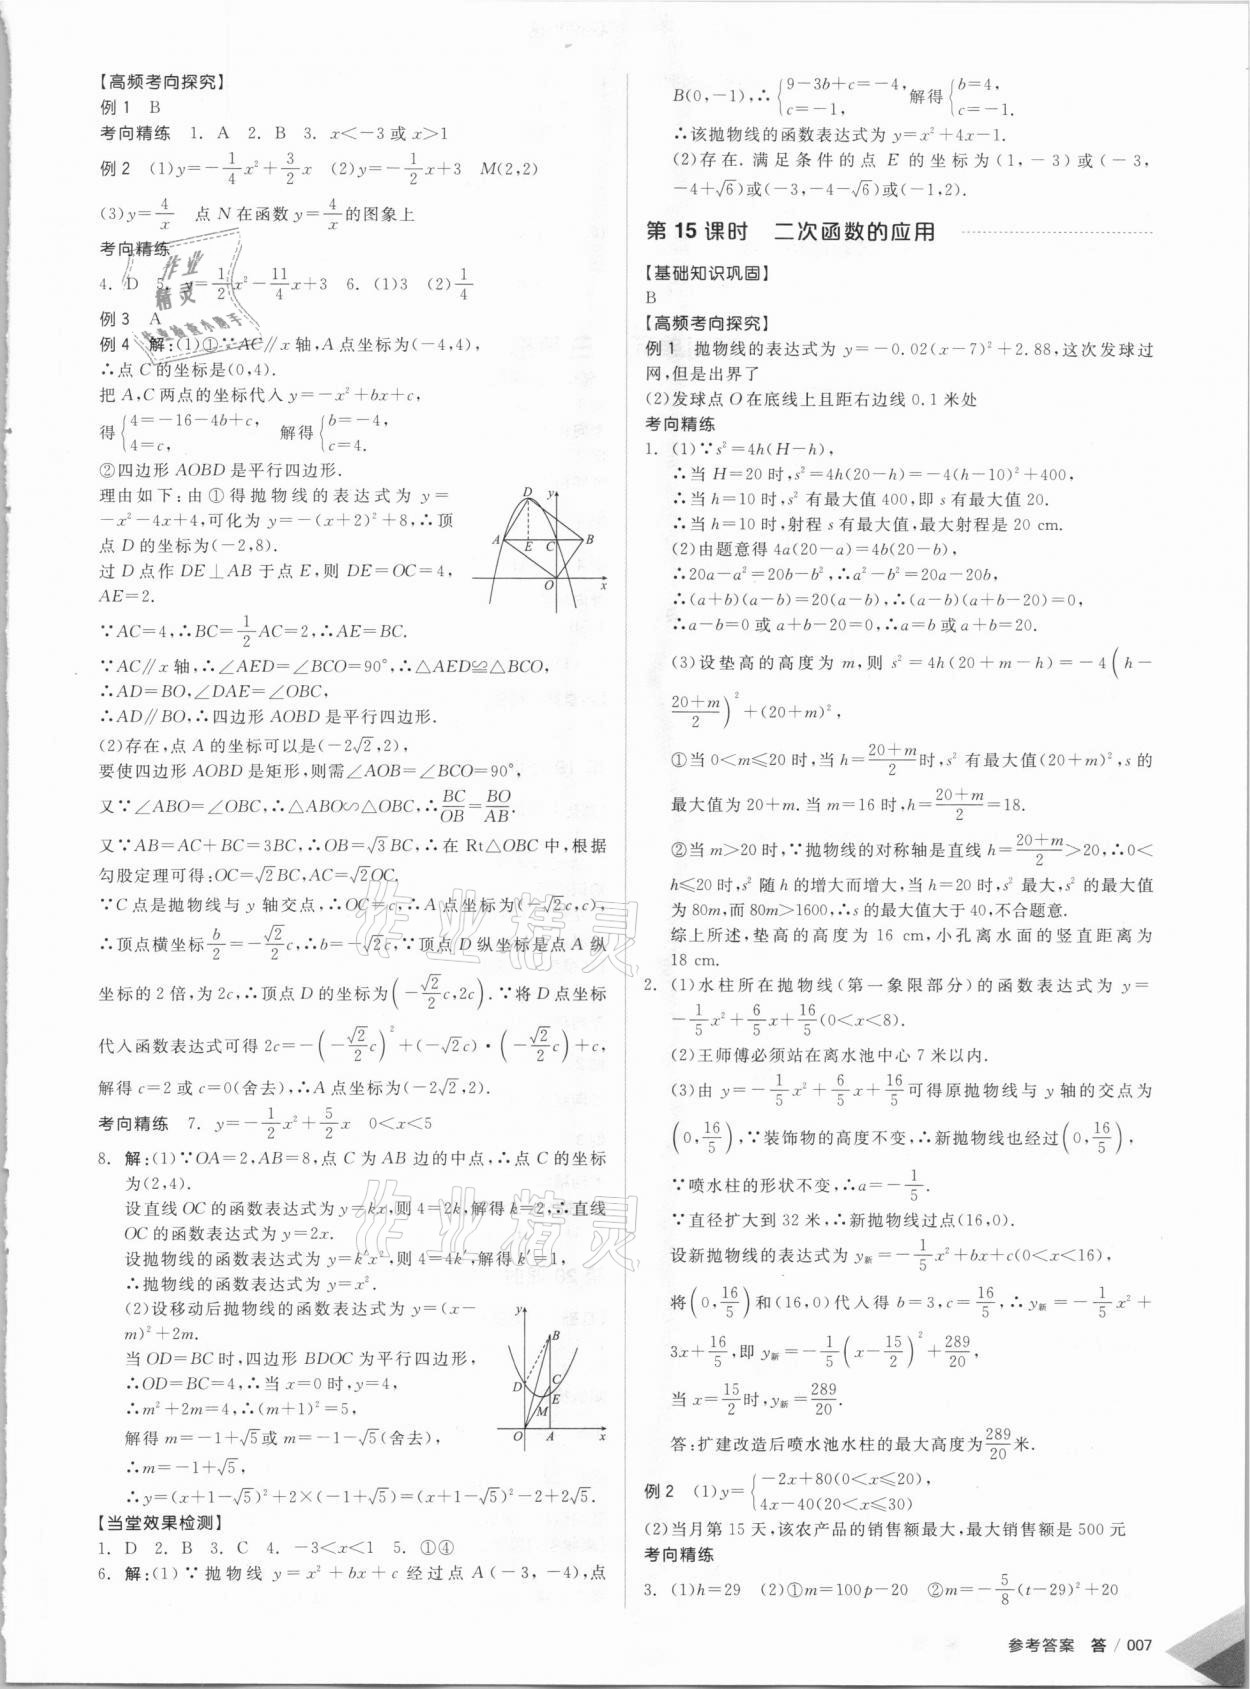 【高频考向探究】
例1 B
考向精练 1. A 2. B 3. x<-3或x>1
例2 (1)y=-1/4x²+3/2x (2)y=-1/2x+3 M(2,2)
(3)y=4/x 点N在函数y=4/x的图象上
考向精练
4. D 5. y=1/2x²-11/4x+3 6. (1)3 (2)1/4
例3 A
例4 解:(1)①∵AC∥x轴,A点坐标为(-4,4),
∴点C的坐标是(0,4).
把A,C两点的坐标代入y=-x²+bx+c,
得{4=-16-4b+c, 4=c, 解得{b=-4, c=4.
②四边形AOBD是平行四边形.
理由如下:由①得抛物线的表达式为y=
-x²-4x+4,可化为y=-(x+2)²+8,∴顶
点D的坐标为(-2,8).
过D点作DE⊥AB于点E,则DE=OC=4,
AE=2.
∵AC=4,∴BC=1/2AC=2,∴AE=BC.
∵AC∥x轴,∴∠AED=∠BCO=90°,∴△AED≌△BCO,
∴AD=BO,∠DAE=∠OBC,
∴AD∥BO,∴四边形AOBD是平行四边形.
(2)存在,点A的坐标可以是(-2√2,2),
要使四边形AOBD是矩形,则需∠AOB=∠BCO=90°,
又∵∠ABO=∠OBC,∴△ABO∽△OBC,∴BC/OB=BO/AB.
又∵AB=AC+BC=3BC,∴OB=√3BC,∴在Rt△OBC中,根据
勾股定理可得:OC=√2BC,AC=√2OC.
∵C点是抛物线与y轴交点,∴OC=c,∴A点坐标为(-√2c,c),
∴顶点横坐标b/2=-√2/2c,∴b=-√2c,∵顶点D纵坐标是点A纵
坐标的2倍,为2c,∴顶点D的坐标为(-√2/2c,2c).∵将D点坐标
代入函数表达式可得2c=-(-√2/2c)²+(-√2c)·(-√2/2c)+c,
解得c=2或c=0(舍去),∴A点坐标为(-2√2,2).
考向精练 7. y=-1/2x²+5/2x 0<x<5
8. 解:(1)∵OA=2,AB=8,点C为AB边的中点,∴点C的坐标
为(2,4).
设直线OC的函数表达式为y=kx,则4=2k,解得k=2,∴直线
OC的函数表达式为y=2x.
设抛物线的函数表达式为y=k′x²,则4=4k′,解得k′=1,
∴抛物线的函数表达式为y=x².
(2)设移动后抛物线的函数表达式为y=(x-
m)²+2m.
当OD=BC时,四边形BDOC为平行四边形,
∴OD=BC=4,∴当x=0时,y=4,
∴m²+2m=4,∴(m+1)²=5,
解得m=-1+√5或m=-1-√5(舍去),
∴m=-1+√5,
∴y=(x+1-√5)²+2×(-1+√5)=(x+1-√5)²-2+2√5.
【当堂效果检测】
1. D 2. B 3. C 4. -3<x<1 5. ①④
6. 解:(1)∵抛物线y=x²+bx+c经过点A(-3,-4),点
B(0,-1),∴{9-3b+c=-4, c=-1, 解得{b=4, c=-1.
∴该抛物线的函数表达式为y=x²+4x-1.
(2)存在.满足条件的点E的坐标为(1,-3)或(-3,
-4+√6)或(-3,-4-√6)或(-1,2).
第15课时 二次函数的应用
【基础知识巩固】
B
【高频考向探究】
例1 抛物线的表达式为y=-0.02(x-7)²+2.88,这次发球过
网,但是出界了
(2)发球点O在底线上且距右边线0.1米处
考向精练
1. (1)∵s²=4h(H-h),
∴当H=20时,s²=4h(20-h)=-4(h-10)²+400,
∴当h=10时,s²有最大值400,即s有最大值20.
∴当h=10时,射程s有最大值,最大射程是20 cm.
(2)由题意得4a(20-a)=4b(20-b),
∴20a-a²=20b-b²,∴a²-b²=20a-20b,
∴(a+b)(a-b)=20(a-b),∴(a-b)(a+b-20)=0,
∴a-b=0或a+b-20=0,∴a=b或a+b=20.
(3)设垫高的高度为m,则s²=4h(20+m-h)=-4(h-
20+m/2)²+(20+m)²,
①当0<m≤20时,当h=20+m/2时,s²有最大值(20+m)²,s的
最大值为20+m.当m=16时,h=20+m/2=18.
②当m>20时,∵抛物线的对称轴是直线h=20+m/2>20,∴0<
h≤20时,s²随h的增大而增大,当h=20时,s²最大,s²的最大值
为80m,而80m>1600,∴s的最大值大于40,不合题意.
综上所述,垫高的高度为16 cm,小孔离水面的竖直距离为
18 cm.
2. (1)水柱所在抛物线(第一象限部分)的函数表达式为y=
-1/5x²+6/5x+16/5(0<x<8).
(2)王师傅必须站在离水池中心7米以内.
(3)由y=-1/5x²+6/5x+16/5可得原抛物线与y轴的交点为
(0,16/5),∵装饰物的高度不变,∴新抛物线也经过(0,16/5),
∵喷水柱的形状不变,∴a=-1/5.
∵直径扩大到32米,∴新抛物线过点(16,0).
设新抛物线的表达式为y新=-1/5x²+bx+c(0<x<16),
将(0,16/5)和(16,0)代入得b=3,c=16/5,∴y新=-1/5x²+
3x+16/5,即y新=-1/5(x-15/2)²+289/20,
当x=15/2时,y新=289/20.
答:扩建改造后喷水池水柱的最大高度为289/20米.
例2 (1)y={-2x+80(0<x≤20), 4x-40(20<x≤30)
(2)当月第15天,该农产品的销售额最大,最大销售额是500元
考向精练
3. (1)h=29 (2)①m=100p-20 ②m=-5/8(t-29)²+20
参考答案 答 / 007
作业精灵
作业精灵
作业精灵
作业检查小助手